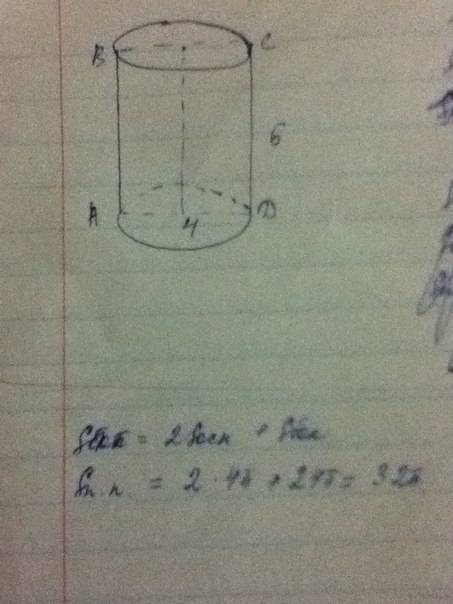 B C
6
A 4 D
= 2 Sосн + Sбок
Sп.п = 2 · 4π + 24π = 32π